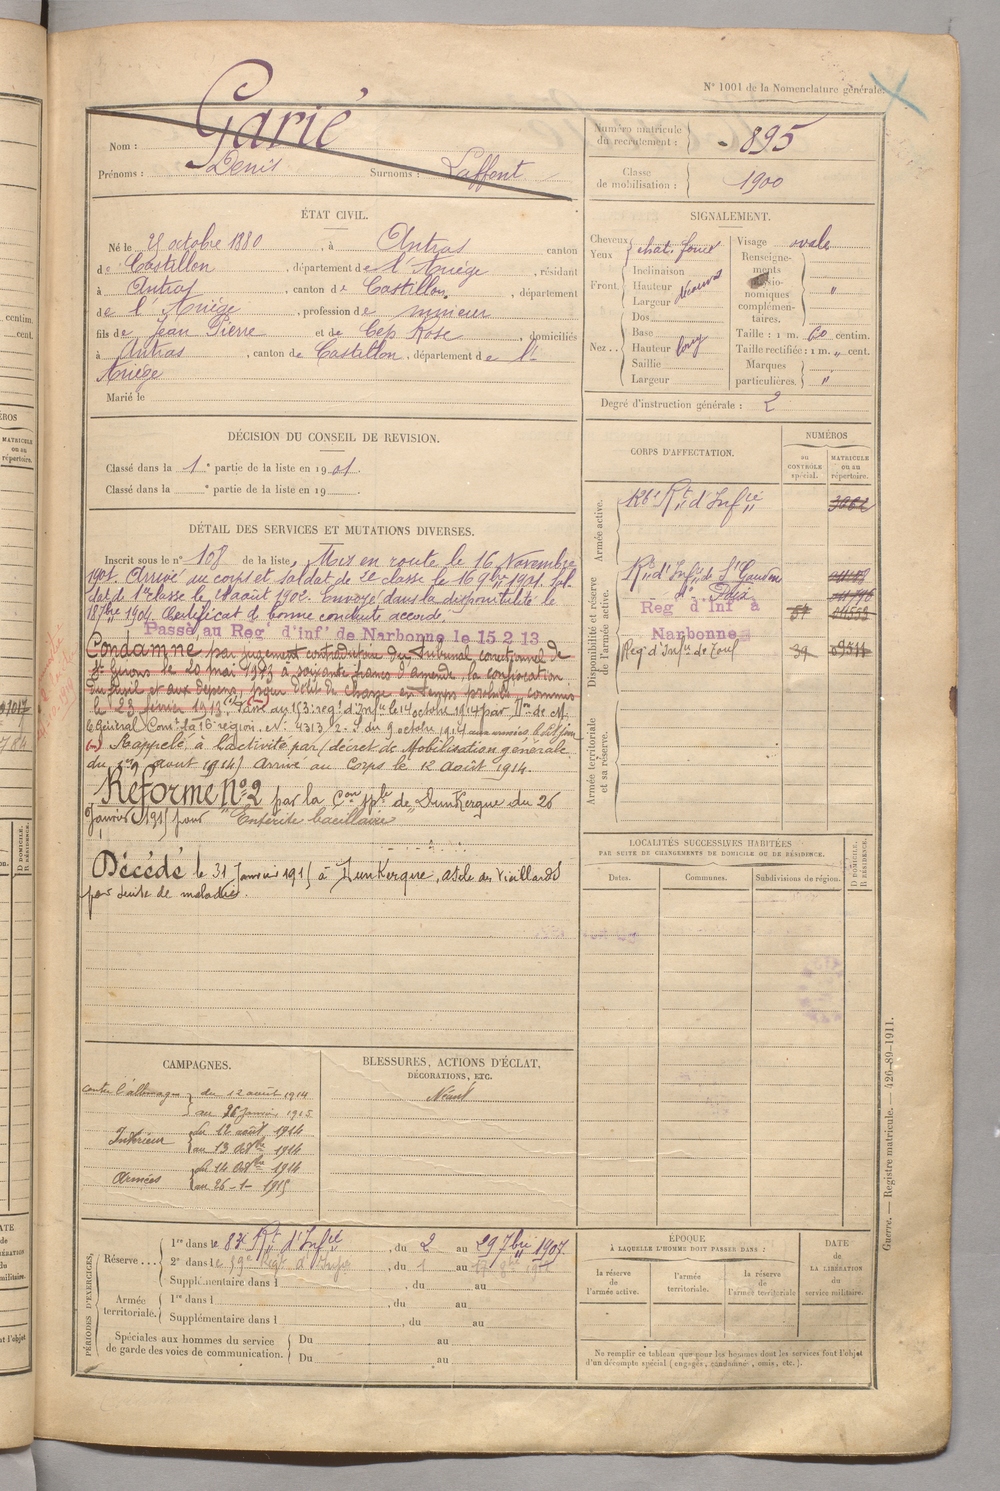 N° 1001 de la Nomenclature générale.
Nom : Garié
Prénoms : Denis Surnoms : Laffont
Numéro matricule du recrutement : 895
Classe de mobilisation : 1900
ÉTAT CIVIL.
Né le octobre 1880, à Antras canton
de Castillon, département de l'Ariége, résidant
à Antras, canton de Castillon, département
de l'Ariége, profession de mineur
fils de Jean Pierre et de Cep Rose, domiciliés
à Antras, canton de Castillon, département de l'
Ariége
Marié le
SIGNALEMENT.
Cheveux
Yeux
chat. foncé
Front.
Inclinaison
Hauteur
Largeur
découvert
Nez..
Dos
Base
Hauteur
Saillie
Largeur
long
Visage ovale
Renseignements physionomiques complémentaires. "
Taille : 1 m. 60 centim.
Taille rectifiée : 1 m. " cent.
Marques particulières. "
Degré d'instruction générale : 2
DÉCISION DU CONSEIL DE REVISION.
Classé dans la 1e partie de la liste en 1901.
Classé dans la e partie de la liste en 19 .
DÉTAIL DES SERVICES ET MUTATIONS DIVERSES.
Inscrit sous le n° 108 de la liste Mis en route le 16 Novembre
1901. Arrivé au corps et soldat de 2e classe le 16 9bre 1901. Sol
dat de 1re classe le août 1902. Envoyé dans la disponibilité le
18 7bre 1904. Certificat de bonne conduite accordé.
Passé au Reg d'inf de Narbonne le 15 2 13
Condamné par jugement contradictoire du Tribunal correctionnel de
St Girons le 20 mai 1913 à soixante francs d'amende, la confiscation
du fusil et aux dépens, pour délit de chasse en temps prohibé, commis
le 23 février 1913. Passé au 153e régt d'Infie le 14 octobre 1914 par Don de M.
le Général Comt la 16e région, N° 4313/2. S du 9 octobre 1914 aux armées
Rappelé à l'activité par décret de Mobilisation générale
du 1er août 1914. Arrivé au Corps le 12 Août 1914.
Réformé N° 2 par la Con Sple de Dunkerque du 26
Janvier 1915 pour "Entérite bacillaire"
Décédé le 31 Janvier 1915 à Dunkerque, asile des Vieillards
par suite de maladie.
CORPS D'AFFECTATION.
NUMÉROS
au CONTRÔLE spécial.
MATRICULE ou au répertoire.
Armée active.
Rt d'Infie
Disponibilité et réserve de l'armée active.
Rt d'Infie de St Gaudens
do Foix
Reg d'Inf à
Narbonne
Reg d'Infie de Toul
Armée territoriale et sa réserve.
LOCALITÉS SUCCESSIVES HABITÉES
PAR SUITE DE CHANGEMENTS DE DOMICILE OU DE RÉSIDENCE.
Dates.
Communes.
Subdivisions de région.
D DOMICILE. R RÉSIDENCE.
CAMPAGNES.
contre l'allemagne du 12 août 1914
au 26 Janvier 1915
Intérieur du 12 août 1914
au 13 Octbre 1914
Armées du 14 Octbre 1914
au 26-1-1915
BLESSURES, ACTIONS D'ÉCLAT,
DÉCORATIONS, ETC.
Néant
PÉRIODES D'EXERCICES.
Réserve...
1re dans le 83e Rt d'Infie, du 2 au 29 7bre 1907.
2e dans le 59e Régt d'Infie, du 1 au
Supplémentaire dans l , du au
Armée territoriale.
1re dans l , du au
Supplémentaire dans l , du au
Spéciales aux hommes du service
de garde des voies de communication.
Du au
Du au
ÉPOQUE
À LAQUELLE L'HOMME DOIT PASSER DANS :
la réserve de l'armée active.
l'armée territoriale.
la réserve de l'armée territoriale
DATE de LA LIBÉRATION du service militaire.
Ne remplir ce tableau que pour les hommes dont les services font l'objet
d'un décompte spécial (engagés, condamné, omis, etc.).
Guerre. — Registre matricule. — 426-89-1911.